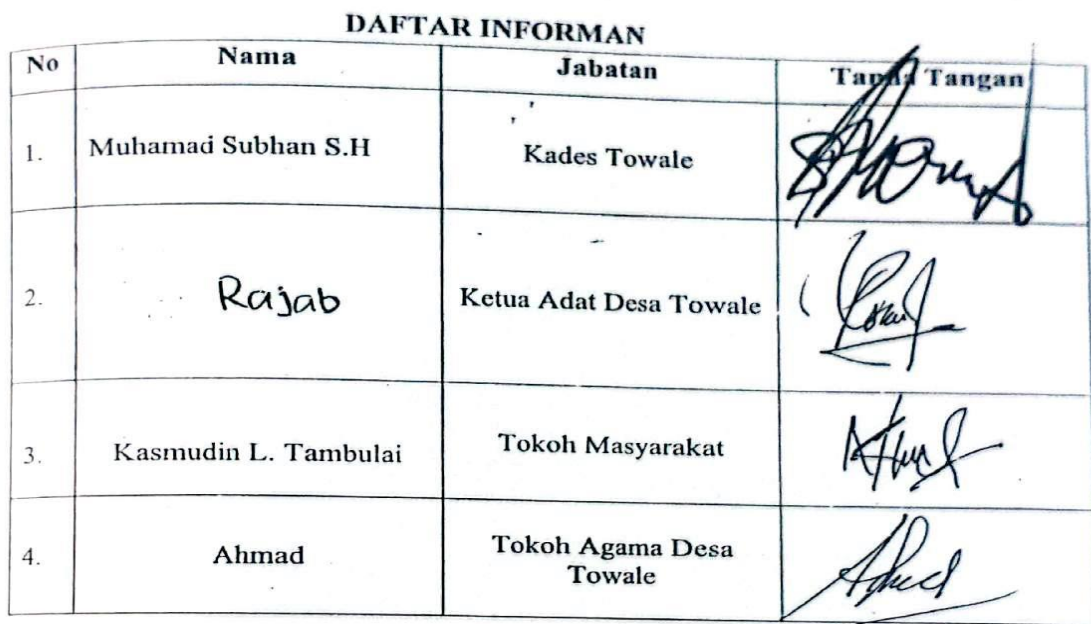 DAFTAR INFORMAN
No Nama Jabatan Tanda Tangan
1. Muhamad Subhan S.H Kades Towale
2. Rajab Ketua Adat Desa Towale
3. Kasmudin L. Tambulai Tokoh Masyarakat
4. Ahmad Tokoh Agama Desa
Towale